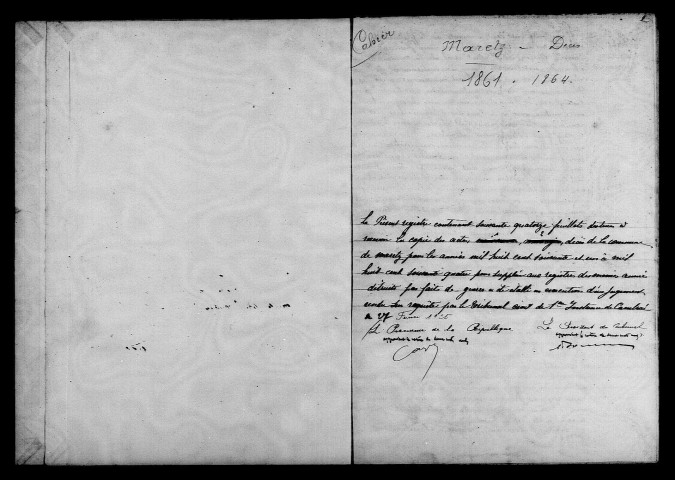 1
Cahier
Maretz - Décès
1861 - 1864.
Le Présent registre contenant soixante quatorze feuillets destiné à
recevoir la copie des actes décès de la commune
de maretz pour les années mil huit cent soixante et un à mil
huit cent soixante quatre pour suppléer aux registres des mêmes années
détruits par faits de guerre a été établi en exécution d'un jugement
rendu sur requête par le Tribunal civil de 1ère Instance de Cambrai
le 27 Février
Le Procureur de la République
Le Président du Tribunal